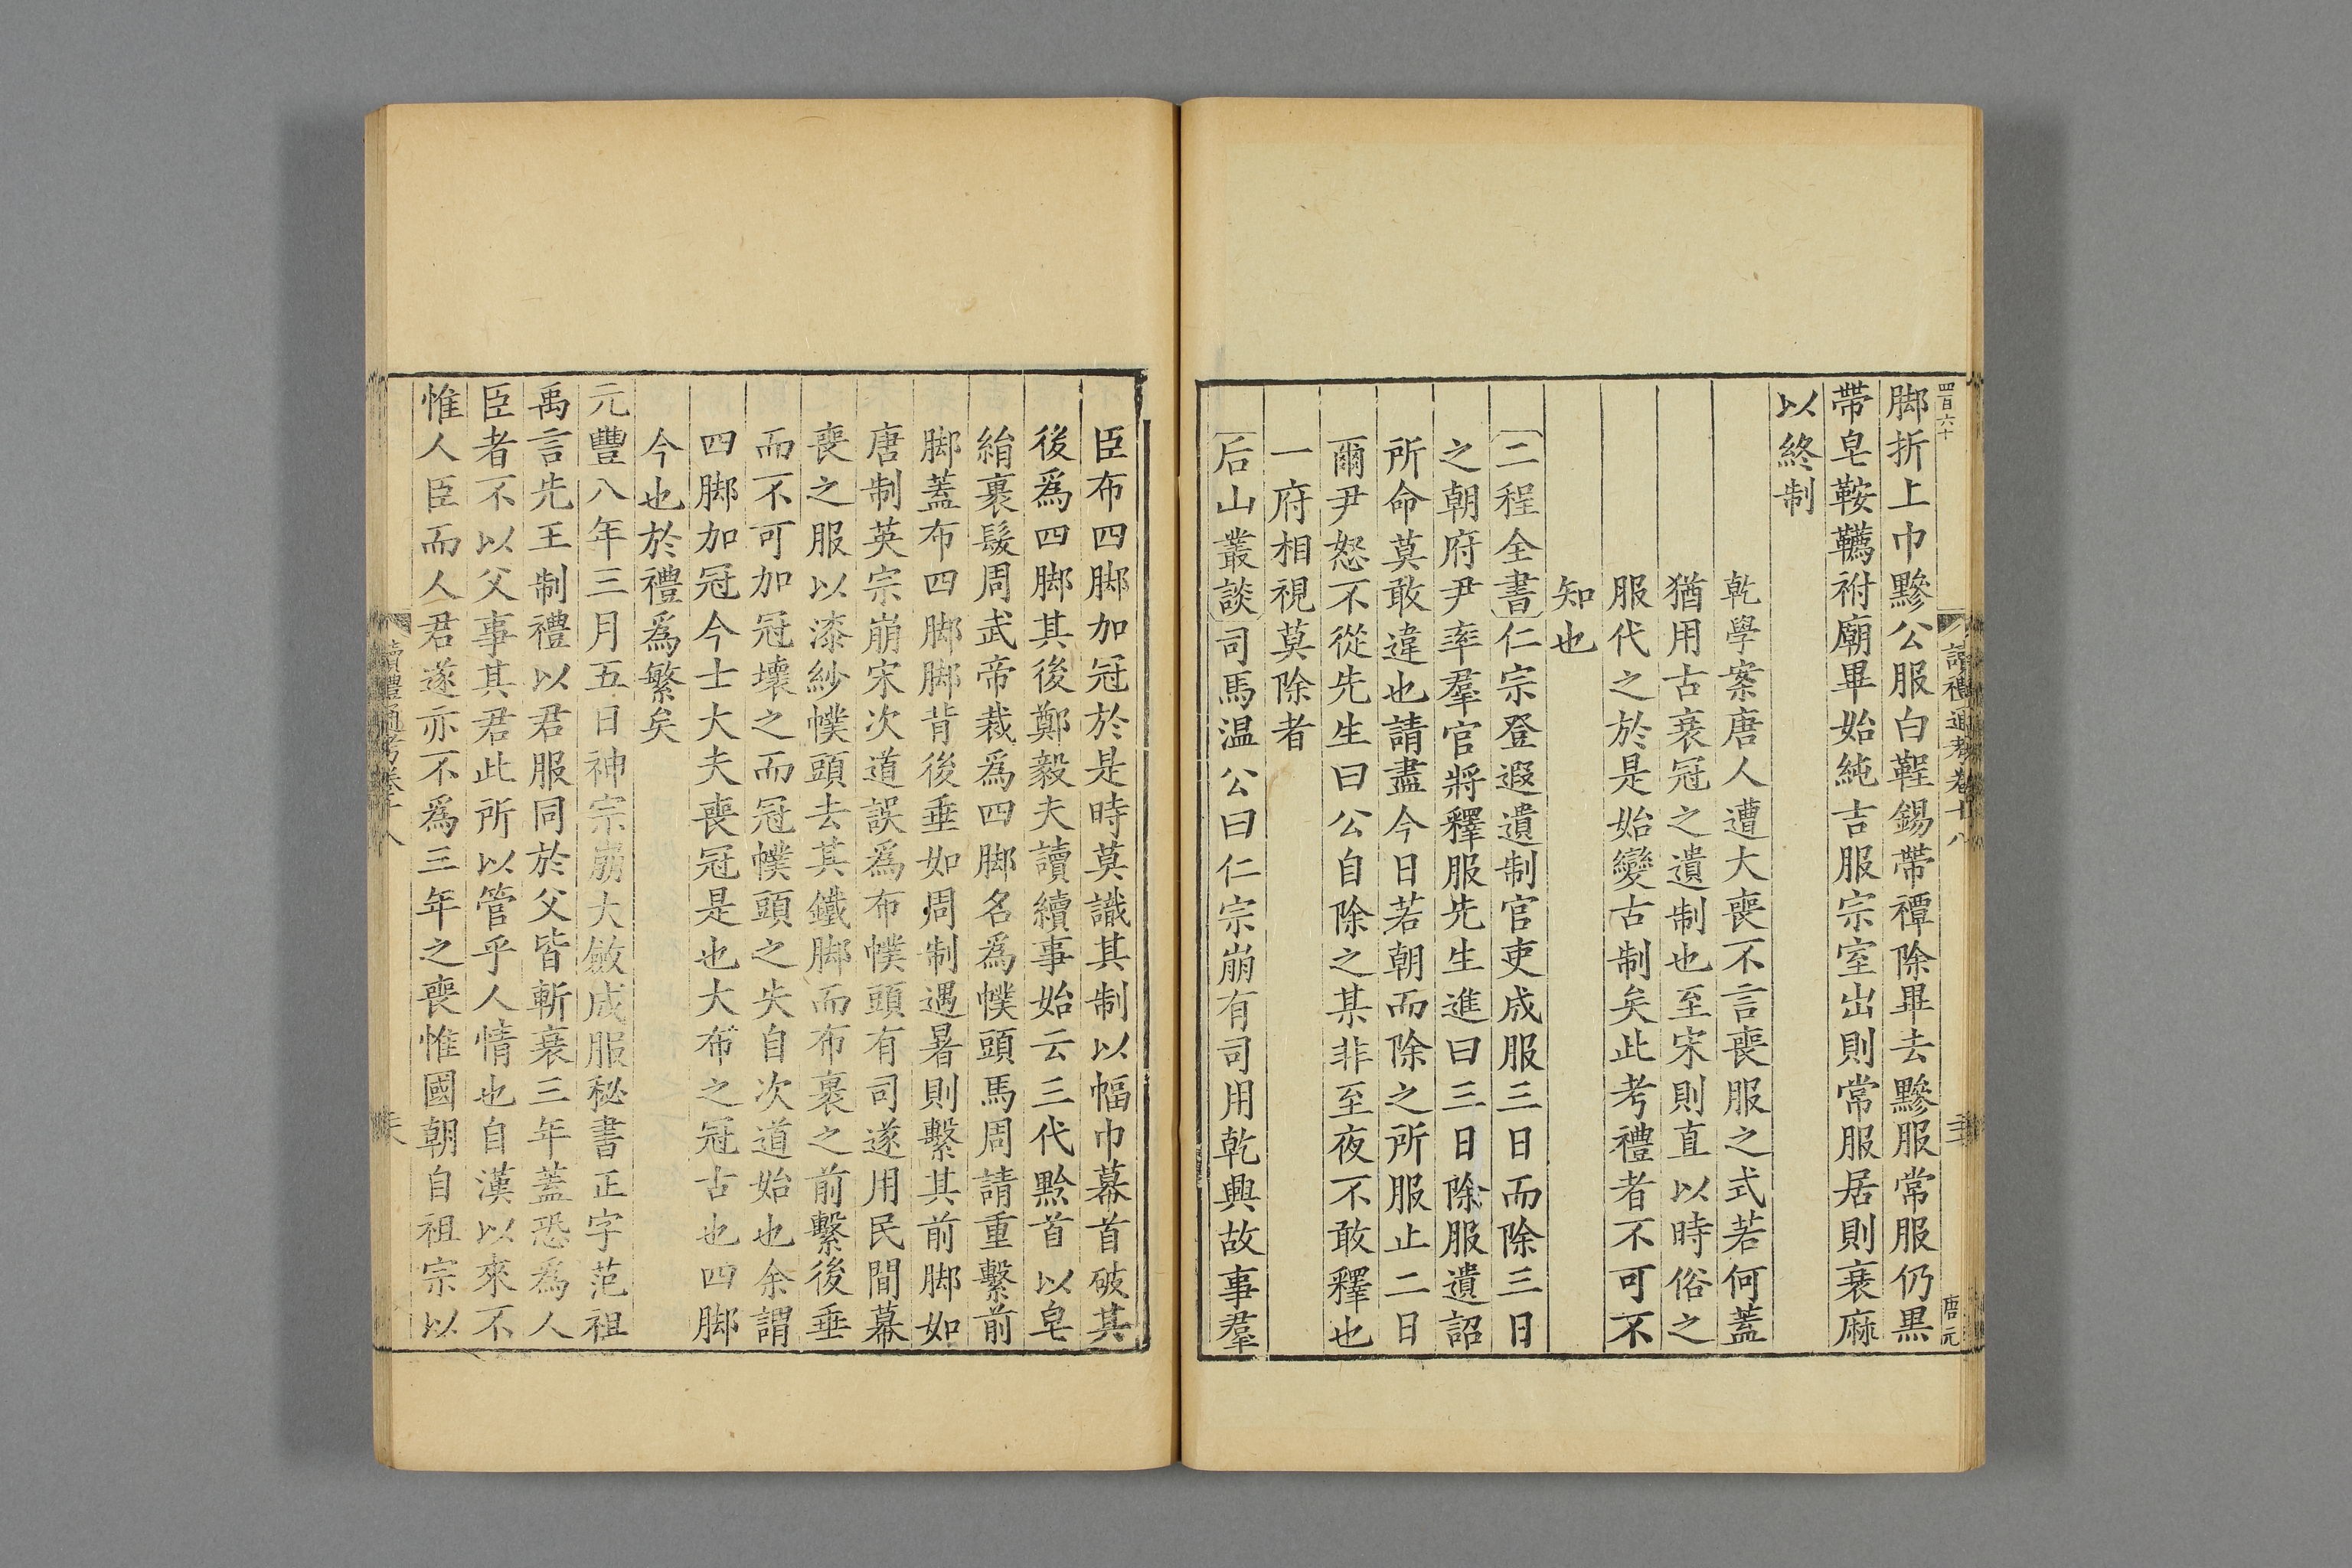 四百六十
讀禮通考卷十八
唐元
脚折上巾黲公服白鞓錫帶禫除畢去黲服常服仍黒
帶皂鞍韉祔廟畢始純吉服宗室出則常服居則衰麻
以終制
乾學案唐人遭大喪不言喪服之式若何蓋
猶用古衰冠之遺制也至宋則直以時俗之
服代之於是始變古制矣此考禮者不可不
知也
二程全書仁宗登遐遺制官吏成服三日而除三日
之朝府尹率羣官將釋服先生進曰三日除服遺詔
所命莫敢違也請盡今日若朝而除之所服止二日
爾尹怒不從先生曰公自除之某非至夜不敢釋也
一府相視莫除者
后山叢談司馬温公曰仁宗崩有司用乾興故事羣
臣布四脚加冠於是時莫識其制以幅巾幕首破其
後爲四脚其後鄭毅夫讀續事始云三代黔首以皂
絹裹髮周武帝裁爲四脚名爲幞頭馬周請重繫前
脚蓋布四脚脚背後垂如周制遇暑則繫其前脚如
唐制英宗崩宋次道誤爲布幞頭有司遂用民間幕
喪之服以漆紗幞頭去其鐵脚而布裹之前繫後垂
而不可加冠壞之而冠幞頭之失自次道始也余謂
四脚加冠今士大夫喪冠是也大布之冠古也四脚
今也於禮爲繁矣
元豐八年三月五日神宗崩大斂成服秘書正字范祖
禹言先王制禮以君服同於父皆斬衰三年蓋恐爲人
臣者不以父事其君此所以管乎人情也自漢以來不
惟人臣而人君遂亦不爲三年之喪惟國朝自祖宗以
讀禮通考卷十八